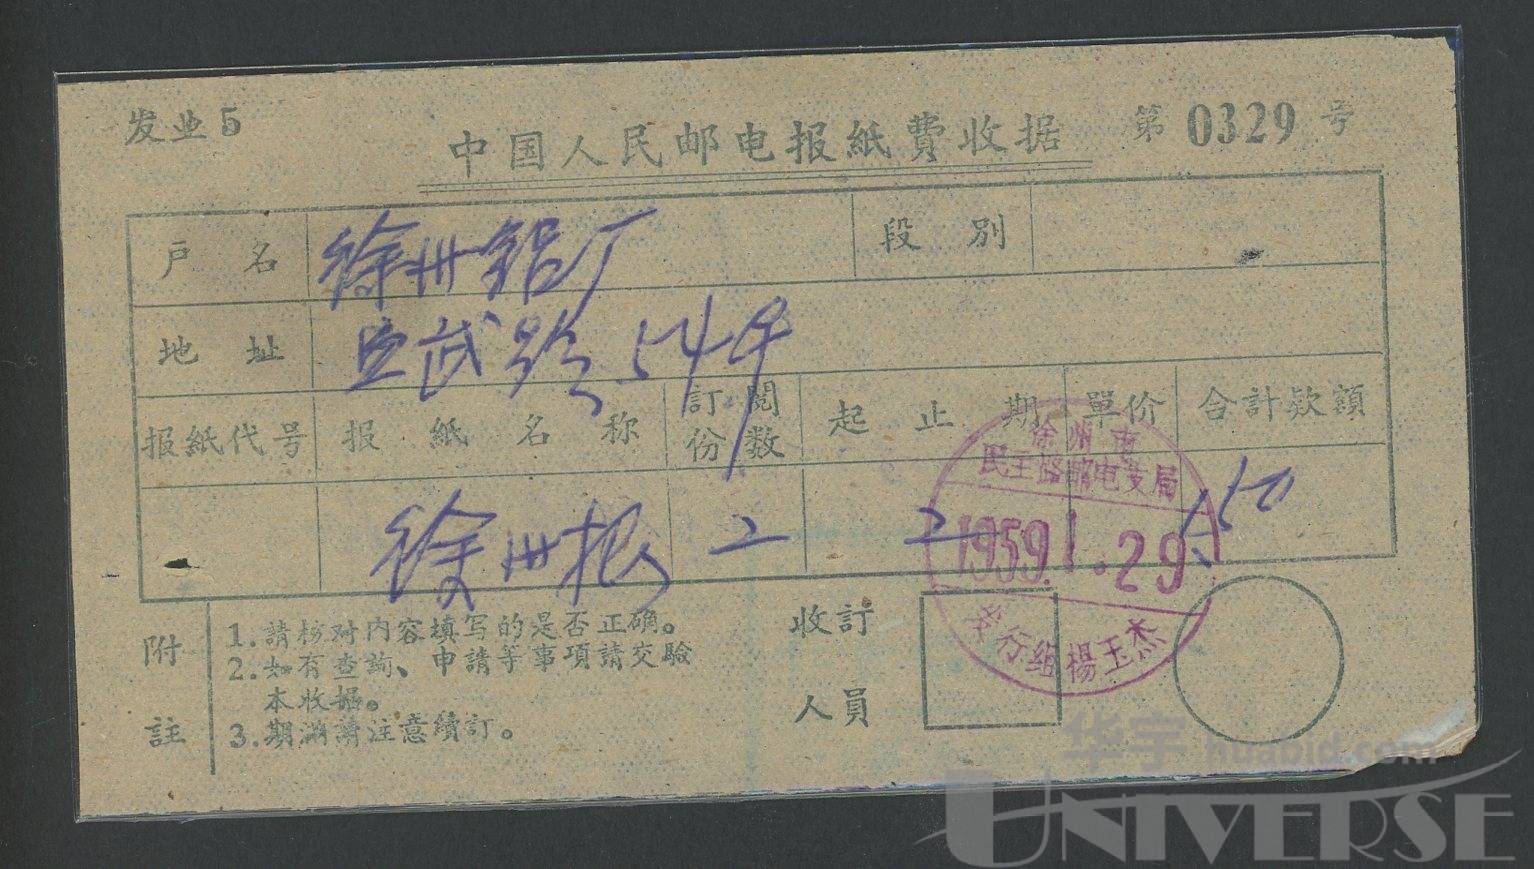 发业5
中国人民邮电报紙費收据
第 0329 号
戶 名 徐州铝厂 段 別
地 址 宣武路54号
报紙代号 报紙名称 訂閱份数 起止期 單价 合計欵額
徐州报 2 2 1.50
徐州市
民主路邮电支局
1959.1.29
发行组楊玉杰
附註
1.請核对內容填写的是否正确。
2.如有查詢、申請等事項請交驗
本收据。
3.期滿請注意續訂。
收訂
人員
华宇 huabid.com
UNIVERSE